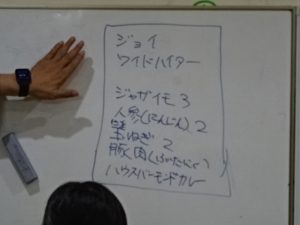 ジョイ
ワイドハイター
ジャガイモ 3
人参(にんじん) 2
玉ねぎ 2
豚肉(ぶたにく)
ハウスバーモンドカレー